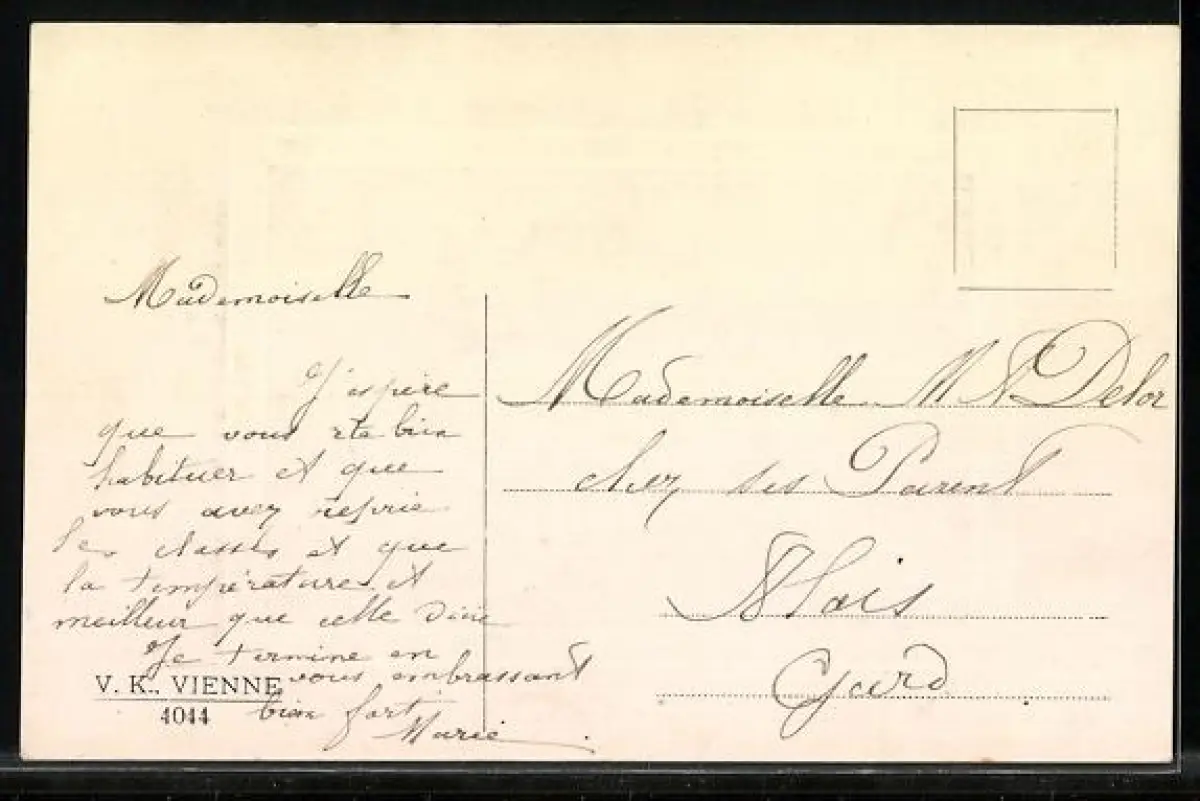 Mademoiselle
J'espère
que vous ete bien
habituer et que
vous avez reprie
les classes et que
la température et
meilleur que celle dici
Je termine en
vous embrassant
bien fort
Marie
V. K., VIENNE
4014
Mademoiselle M Delor
chez ses Parent
Alais
Gard